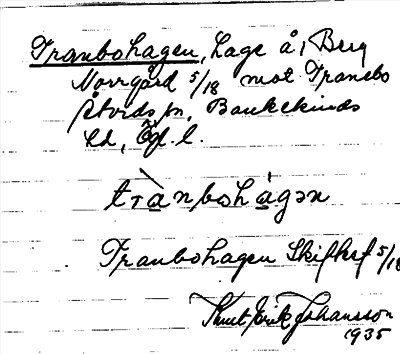 Tranbohagen, Lage å, Berg
Norrgård 5/18 mot Tranebo
Åtvids sn, Bankekinds
hd, Ögl. l.
trànbohágən
Tranbohagen Skifteskf 5/18
Knut Erik Johansson
1935